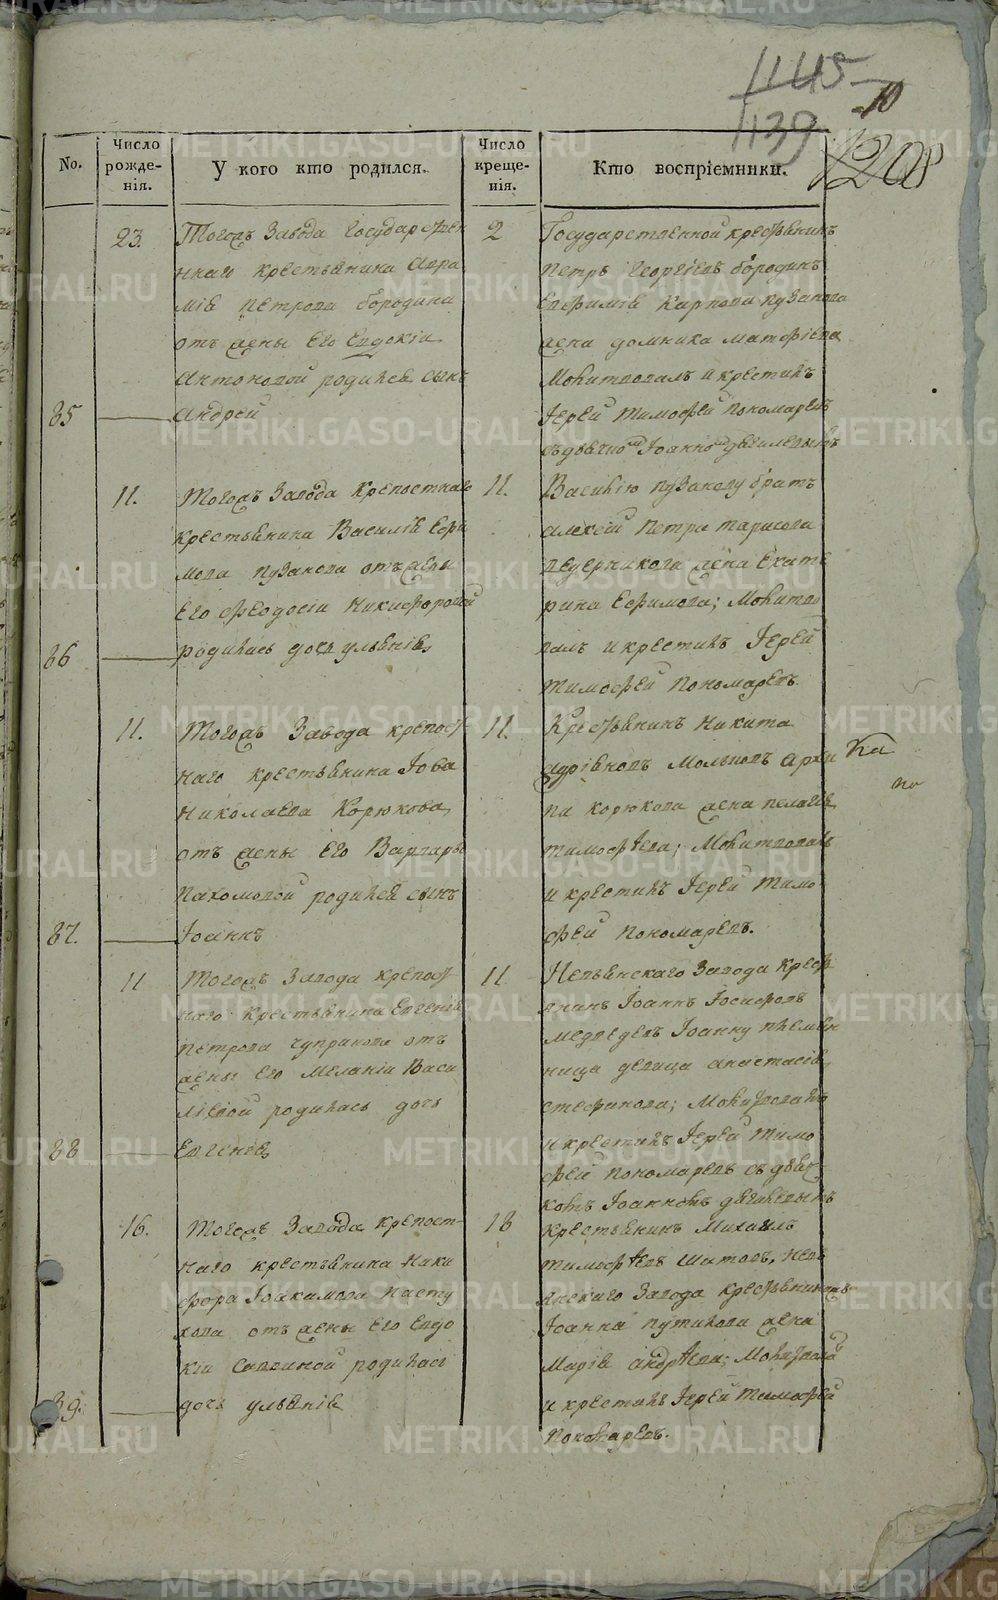 1145
1139
10
1208
No.
Число рожденія.
У кого кто родился.
Число крещенія.
Кто воспріемники.
23.
Тогожъ Завода Государствен
наго крестьянина Авра
мія Петрова бородина
отъ жены Его Евдокіи
Антоновой родился сынъ
85
Андрей
2
Государственной крестьянинъ
Петръ Георгіевъ бородинъ
Евфимія Карпова Пузанова
жена домника матфѣева
Молитвовалъ и крестилъ
Іерей Тимофей Пономаревъ
11.
Тогожъ Завода Крепостнаго
крестьянина Василія Ефи
мова Пузанова отъ жены
Его Феодосіи Никифоровой
86
родилась дочь ульянія
11.
Василію Пузанову братъ
алексѣй Петра тарасова
ведерникова жена Екате
рина Ефимова; Молитво
валъ и крестилъ Іерей
Тимофей Пономаревъ
11.
Тогожъ Завода крепост
наго крестьянина Іова
Николаева Корюкова
отъ жены Его Варвары
Пахомовой родился сынъ
87.
Іоаннъ
11.
Крестьянинъ Никита
Архи
па корюкова жена пелагія
тимофѣева; Молитвовалъ
и крестилъ Іерей Тимо
фей Пономаревъ.
11
Тогожъ Завода крепост
наго крестьянина Евгенія
Петрова Чупракова отъ
жены Его Меланіи Васи
лѣвой родилась дочь
88
Евгенія
11
Невьянскаго Завода крест
янинъ Іоаннъ Іосифовъ
медведевъ Іоанну племян
ница девица анастасія
стефанова; Молитвовалъ
и крестилъ Іерей Тимо
фей Пономаревъ съ дьяч
комъ Іоанномъ
16.
Тогожъ Завода крепост-
наго крестьянина Ники
фора Іоакимова Насту
хова отъ жены Его Евдо
кіи Саввиной родилась
89.
дочь ульянія
18
крестьянинъ Михаилъ
тимофѣевъ Шатовъ, Невь
янскаго Завода крестьянина
Іоанна путилова жена
Марія андрѣева; Молитвовалъ
и крестилъ Іерей Тимофей
Пономаревъ.
METRIKI.GASO-URAL.RU